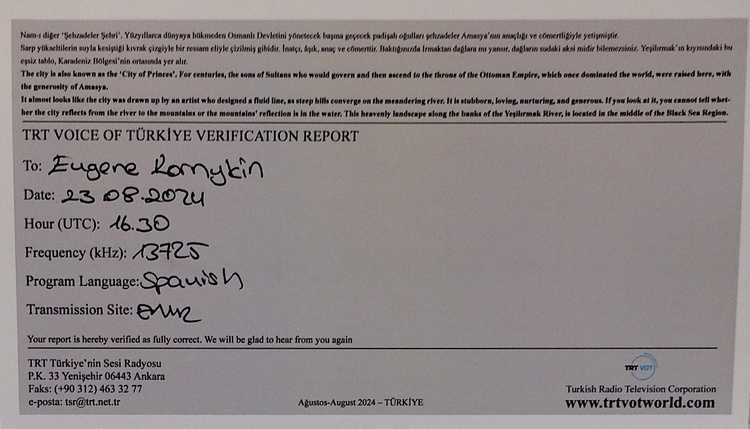 Nam-ı diğer 'Şehzadeler Şehri'. Yüzyıllarca dünyaya hükmeden Osmanlı Devletini yönetecek başına geçecek padişah oğulları şehzadeler Amasya'nın anaçlığı ve cömertliğiyle yetişmiştir.
Sarp yükseltilerin suyla kesiştiği kıvrak çizgiyle bir ressam eliyle çizilmiş gibidir. İnatçı, âşık, anaç ve cömerttir. Baktığınızda Irmaktan dağlara mı yansır, dağların sudaki aksi midir bilemezsiniz. Yeşilırmak'ın kıyısındaki bu
eşsiz tablo, Karadeniz Bölgesi'nin ortasında yer alır.
The city is also known as the 'City of Princes'. For centuries, the sons of Sultans who would govern and then ascend to the throne of the Ottoman Empire, which once dominated the world, were raised here, with
the generosity of Amasya.
It almost looks like the city was drawn up by an artist who designed a fluid line, as steep hills converge on the meandering river. It is stubborn, loving, nurturing, and generous. If you look at it, you cannot tell whet-
her the city reflects from the river to the mountains or the mountains' reflection is in the water. This heavenly landscape along the banks of the Yeşilırmak River, is located in the middle of the Black Sea Region.
TRT VOICE OF TÜRKİYE VERIFICATION REPORT
To: Eugene Romykin
Date: 23 08.2024
Hour (UTC): 16.30
Frequency (kHz): 13725
Program Language: Spanish
Transmission Site:
Your report is hereby verified as fully correct. We will be glad to hear from you again
TRT Türkiye'nin Sesi Radyosu
P.K. 33 Yenişehir 06443 Ankara
Faks: (+90 312) 463 32 77
e-posta: tsr@trt.net.tr
Ağustos-August 2024 – TÜRKİYE
TRT VOT
Turkish Radio Television Corporation
www.trtvotworld.com